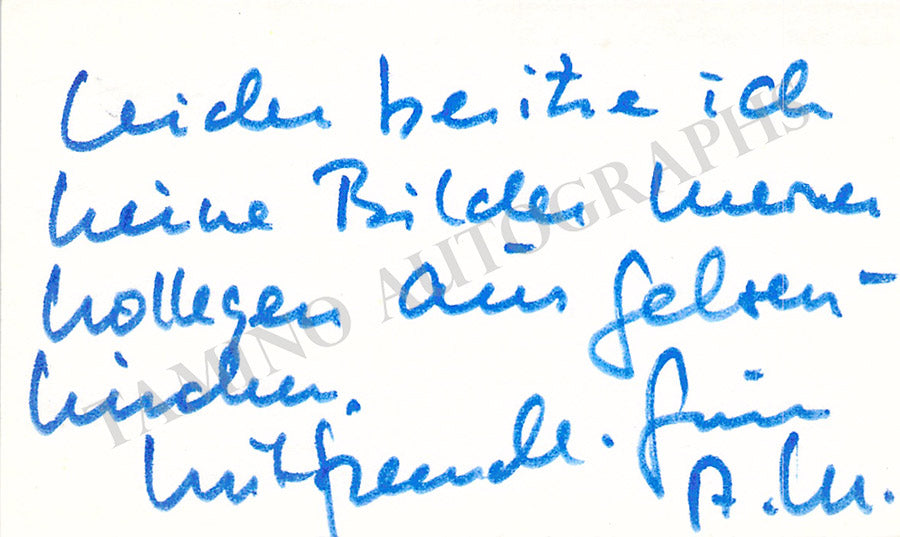 Leider besitze ich
keine Bilder meiner
Kollegen aus Gelsen-
kirchen.
Mit freundl. Gruß
A.M.
TAMINO AUTOGRAPHS